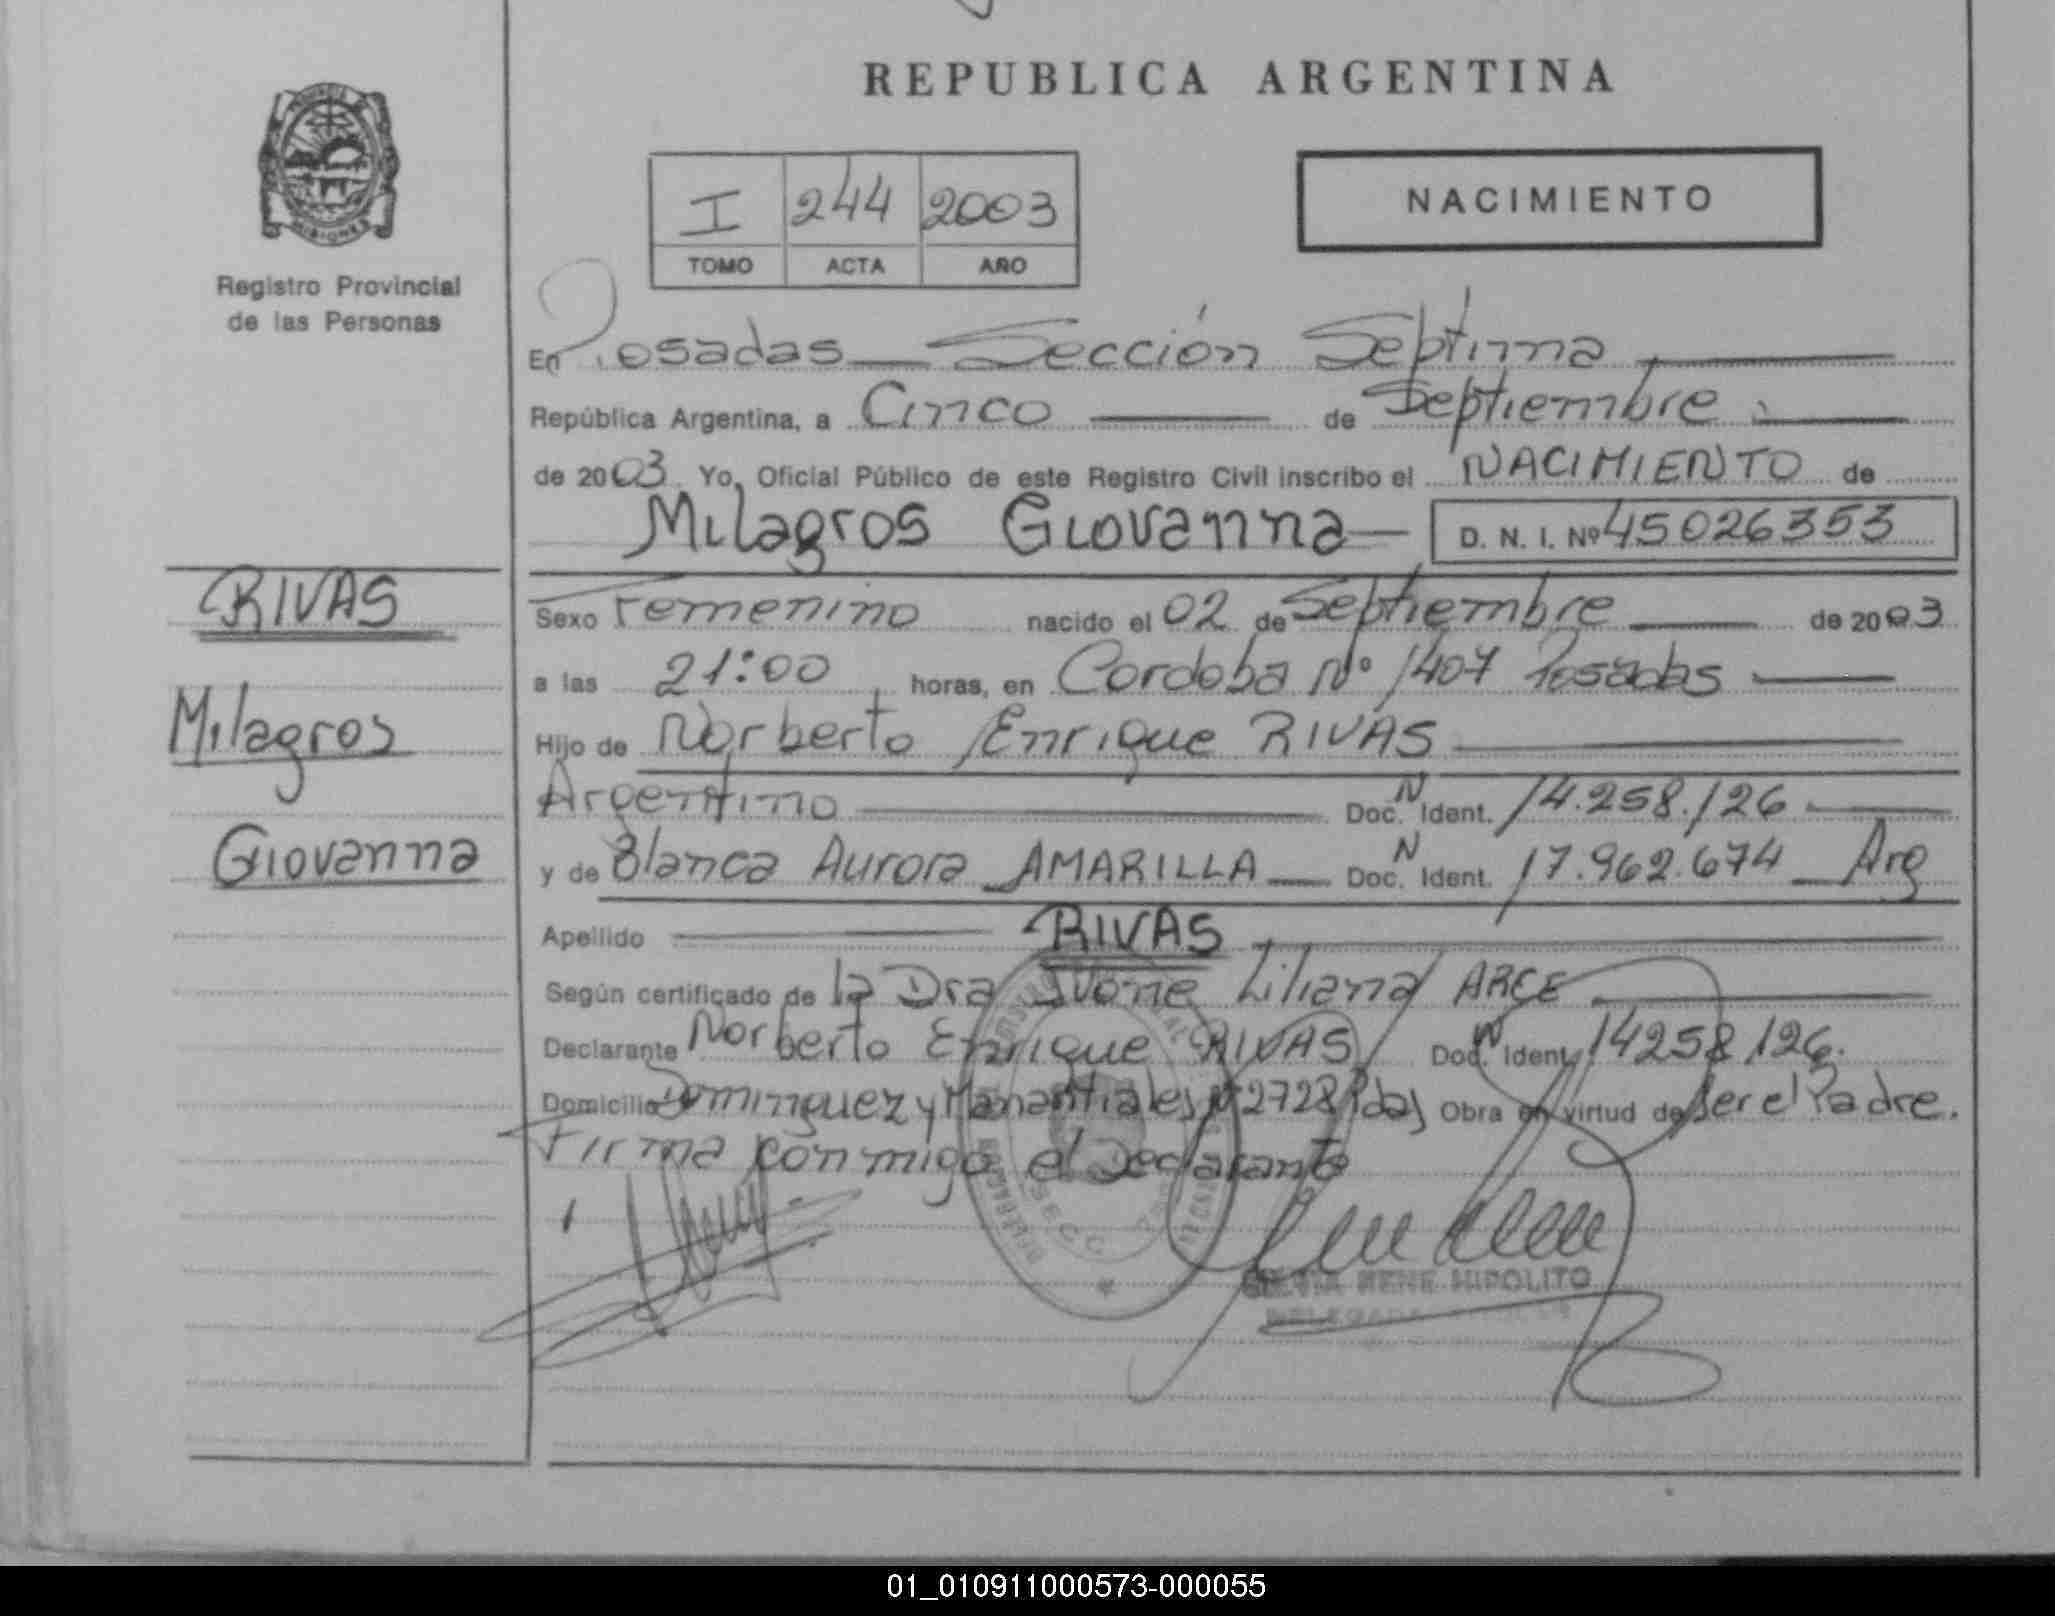 REPUBLICA ARGENTINA
I 244 2003
TOMO ACTA AÑO
NACIMIENTO
MISIONES
Registro Provincial
de las Personas
En Posadas Sección Septima
República Argentina, a Cinco de Septiembre
de 2003 Yo, Oficial Público de este Registro Civil inscribo el NACIMIENTO de
Milagros Giovanna D. N. I. Nº 45026353
RIVAS
Milagros
Giovanna
Sexo Femenino nacido el 02 de Septiembre de 2003
a las 21:00 horas, en Cordoba Nº 1407 Posadas
Hijo de Norberto Enrique RIVAS
Argentino Doc. N Ident. 14.258.126
y de Blanca Aurora AMARILLA Doc. N Ident. 17.962.674 Arg
Apellido RIVAS
Según certificado de la Dra Ivone Liliana ARCE
Declarante Norberto Enrique RIVAS Doc. N Ident. 14258126.
Domicilio Dominguez y Manantiales Nº 2728 Pdas Obra en virtud de ser el Padre.
Firma conmigo el Declarante
RENE HIPOLITO
DELEGADA
01_010911000573-000055